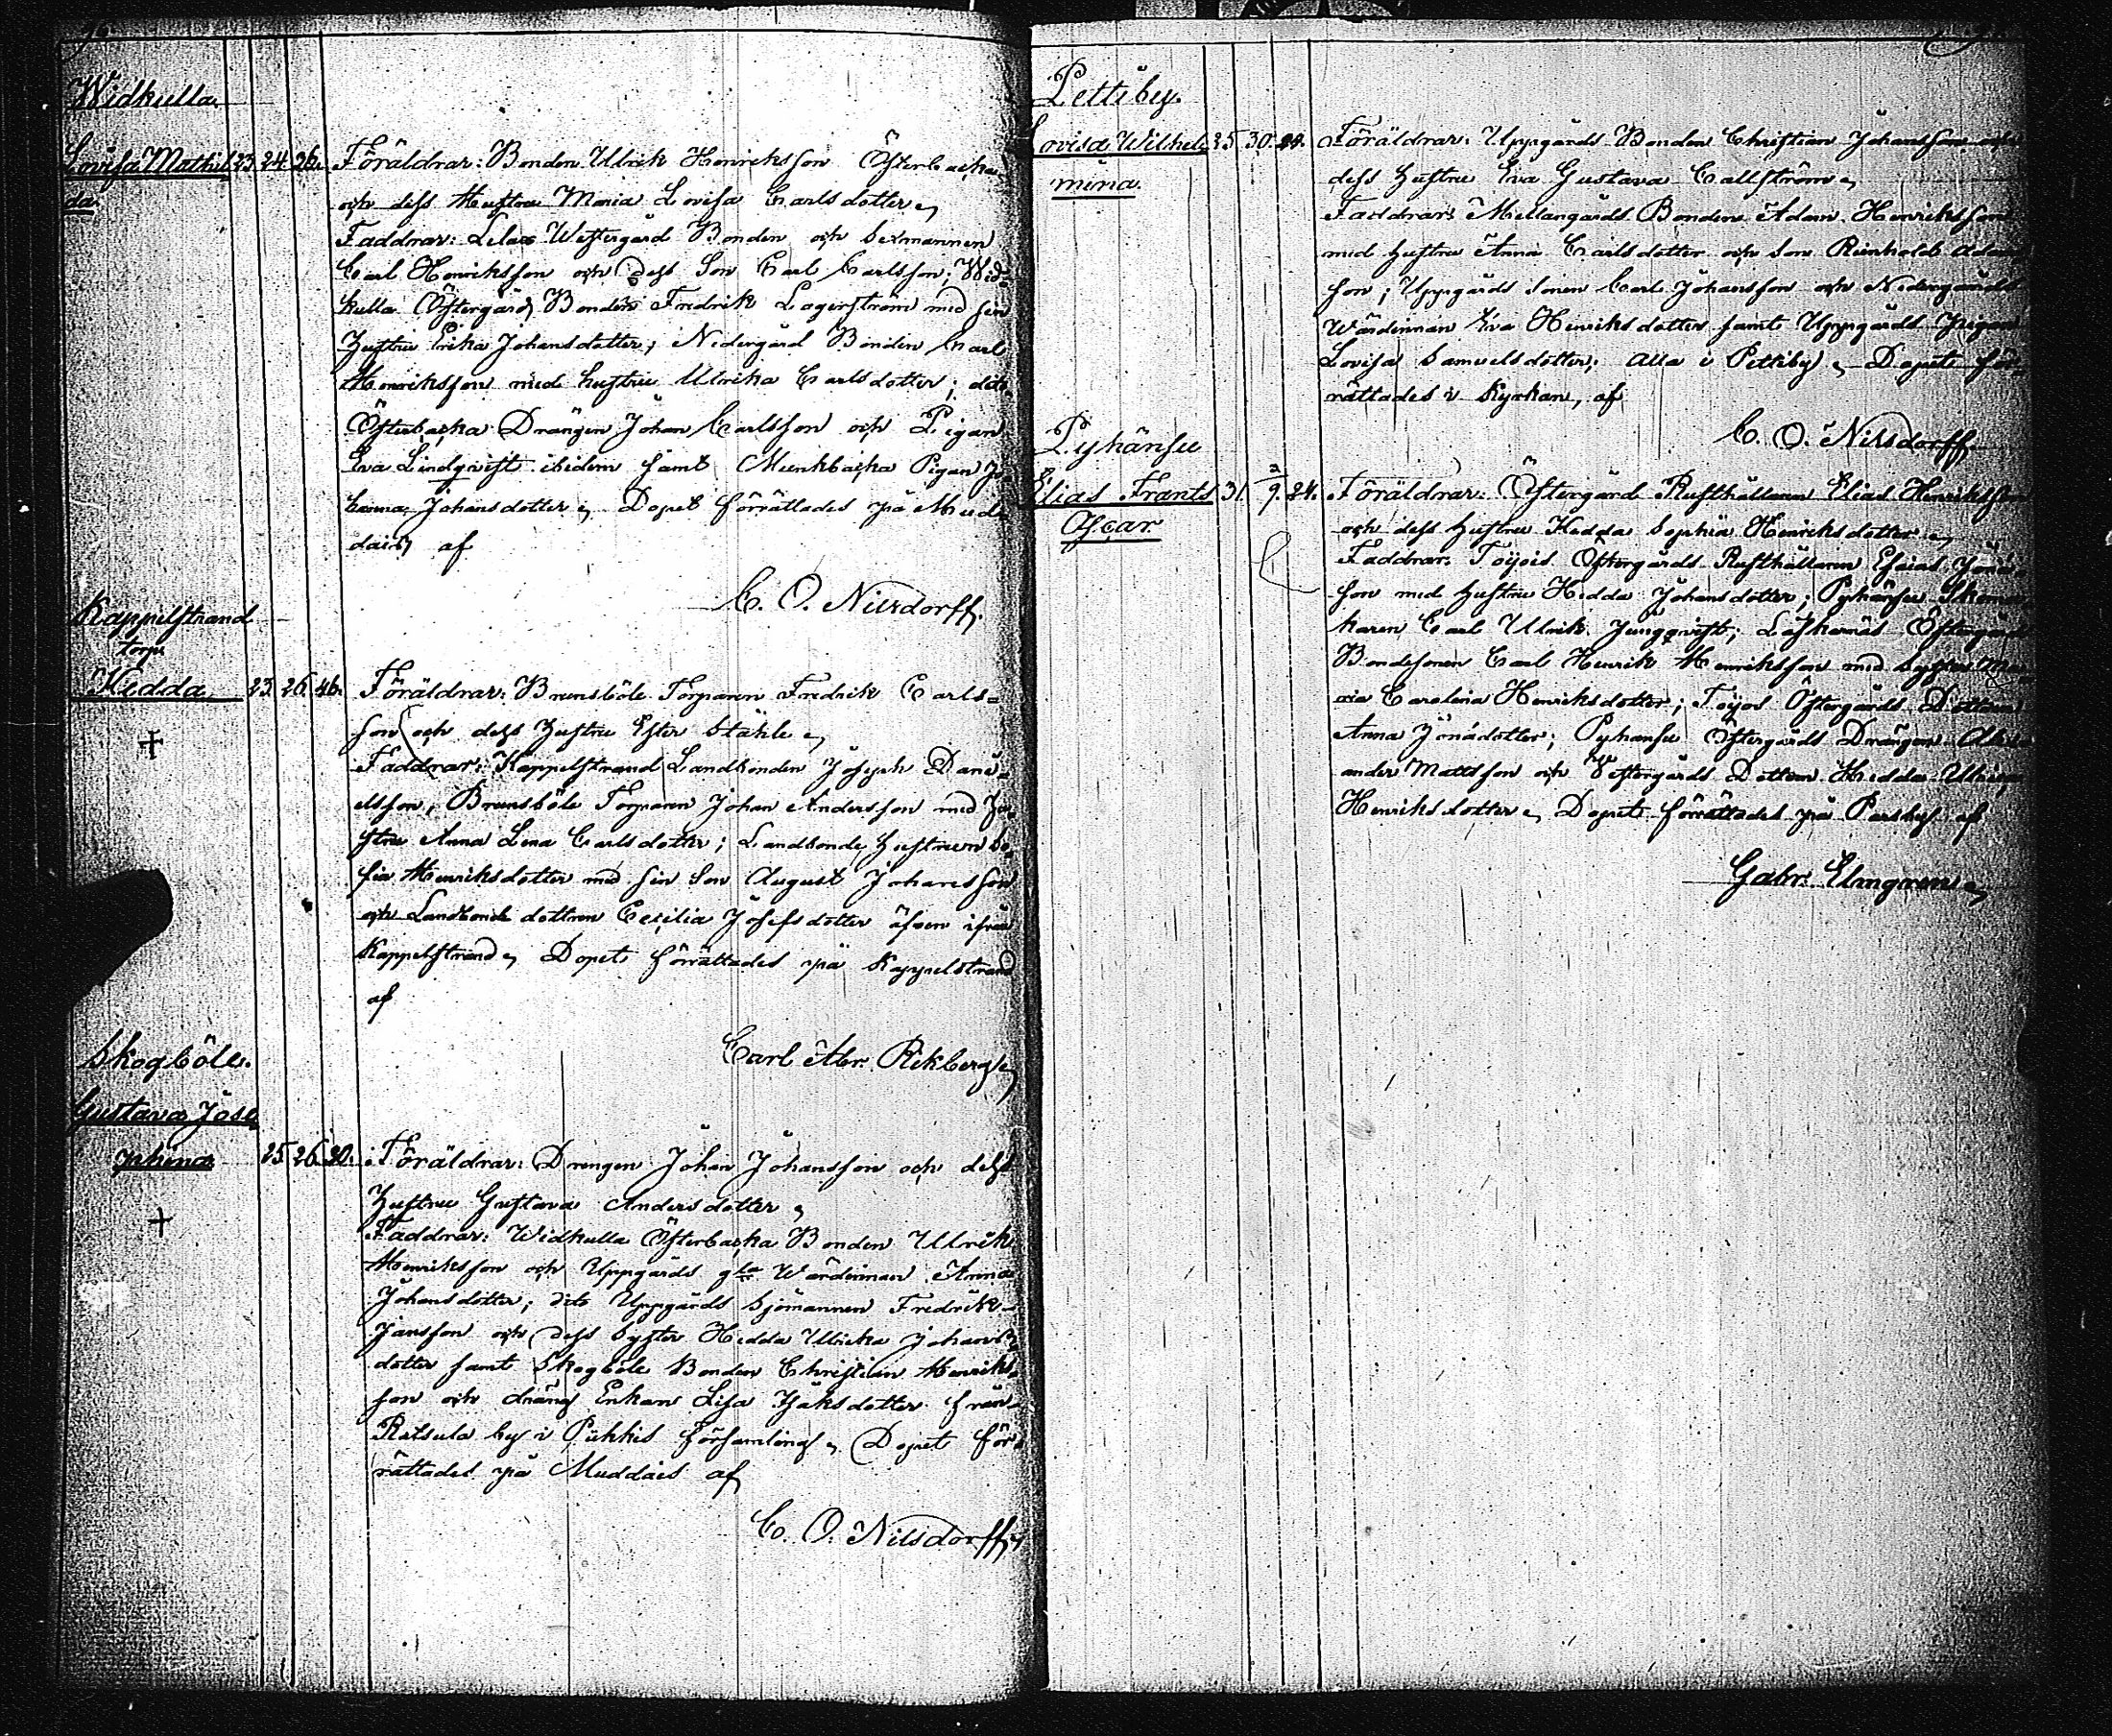 Widkulla.
Lovisa Mathil 23. 24. 26. Föräldrar: Bonden Ulrik Henriksson Österbacka
da. och dess Hustru Maria Lovisa Carlsdotter,
Faddrar: Lelax Westergård Bonden och Sexmannen
Carl Henriksson och dess Son Carl Carlsson; Wid-
kulla Östergård Bonden Fredrik Lagerström med sin
Hustru Erika Johansdotter; Nedergård Bonden Carl
Henriksson med hustru Ulrika Carlsdotter; dito
Österbacka Drängen Johan Carlsson och Pigan
Eva Lindqvist ibidem samt Munkbacka Pigan Jo-
hanna Johansdotter, Dopet förrättades på Mud-
dais af
C. O. Nilsdorff.
Kappelstrand
torp
Hedda. 23. 26. 46. Föräldrar: Brunsböle Torparen Fredrik Carls-
son och dess Hustru Ester Ståhle,
Faddrar: Kappelstrand Landbonden Joseph Dani-
elsson, Brunsböle Torparen Johan Andersson med Hu-
stru Anna Lena Carlsdotter; Landbonde Hustrun So-
fia Henriksdotter med sin Son August Johansson
och Landbonde dottren Cecilia Josefsdotter äfven ifrån
Kappelstrand, Dopet förrättades på Kappelstrand
af
Carl Abr. Rekberg
Skogböle.
Gustava Jose-
phina 25. 26. 30. Föräldrar: Drengen Johan Johansson och dess
Hustru Gustava Andersdotter,
Faddrar: Widkulla Österbacka Bonden Ulrik
Henriksson och Uppgårds gla Wärdinnan Anna
Johansdotter; dito Uppgårds Sjömannen Fredrik
Jansson och dess Syster Hedda Ulrika Johans-
dotter samt Skogböle Bonden Christian Henriks-
son och dräng Enkan Lisa Isaksdotter från
Ratsula by i Pikkis församling, Dopet för-
rättades på Muddais af
C. O. Nilsdorff
Pettiby.
Lovisa Wilhel- 25. 30. 24. Föräldrar: Uppgårds Bonden Christian Johansson och
mina. dess Hustru Eva Gustava Callström,
Faddrar: Mellangårds Bonden Adam Henriksson
med hustru Anna Carlsdotter och Son Reinhold Adams-
son; Uppgårds Sonen Carl Johansson och Nedergårds
Wärdinnan Eva Henriksdotter samt Uppgårds Pigan
Lovisa Samuelsdotter; alla i Pettiby, Dopet för-
rättades i Kyrkan, af
C. O. Nilsdorff
Pyhänsu
Elias Frants 31. 2/9. 24. Föräldrar: Östergård Rusthållaren Elias Henriksson
Oscar och dess Hustru Hedda Sophia Henriksdotter,
Faddrar: Töijois Östergårds Rusthållaren Esaias Jona-
son med hustru Hedda Johansdotter; Pyhänsu Skoma-
karen Carl Ulrik Jungqvist; Östergård
Bondesonen Carl Henrik Henriksson med Syster Ma-
ria Carolina Henriksdotter; Töijos Östergårds Dottren
Anna Jonadotter; Pyhänsu Östergårds Drängen Alex-
ander Mattsson och Westergårds Dottren Hedda Ulrica
Henriksdotter, Dopet förrättades på Parsby af
Gabr. Elmgren